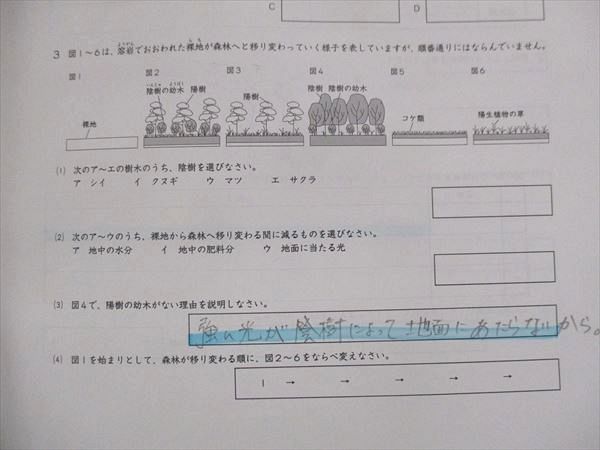 C
D
3 図1～6は、溶岩でおおわれた裸地が森林へと移り変わっていく様子を表していますが、順番通りにはならんでいません。
ようがん
らち
図1 図2 図3 図4 図5 図6
いんじゅ ようぼく
陰樹の幼木 陽樹
陽樹
陰樹 陰樹の幼木
裸地
コケ類
陽生植物の草
(1) 次のア～エの樹木のうち、陰樹を選びなさい。
ア シイ イ クヌギ ウ マツ エ サクラ
(2) 次のア～ウのうち、裸地から森林へ移り変わる間に減るものを選びなさい。
ア 地中の水分 イ 地中の肥料分 ウ 地面に当たる光
(3) 図4で、陽樹の幼木がない理由を説明しなさい。
強い光が陰樹によって地面にあたらないから。
(4) 図1を始まりとして、森林が移り変わる順に、図2～6をならべ変えなさい。
1 → → → → →